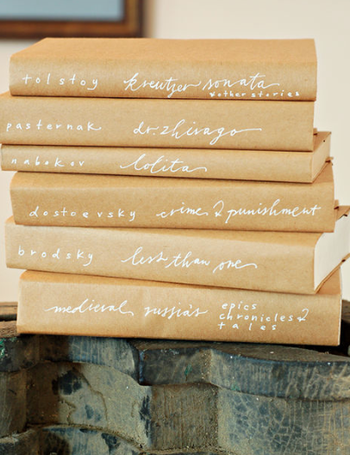 tolstoy kreutzer sonata
& other stories
pasternak dr. zhivago
nabokov lolita
dostoevsky crime & punishment
brodsky less than one
medieval russia's epics
chronicles &
tales